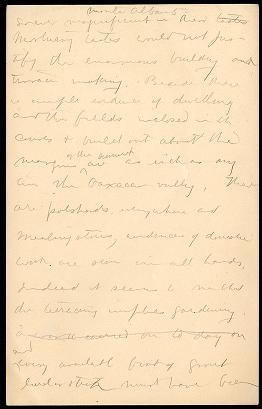 Monte Alban
ever magnificent in their tastes
Mortuary tastes could not jus-
tify the enormous building and
terrace making. Beside there
is ample evidence of dwelling
and the fields inclosed in the
courts & built out about the
margins of the summit are as rich as any
in the Oaxacan valley, There
are potsherds everywhere and
mealing stones, evidences of domestic
work are seen on all hands,
Indeed it seems to me that
the terracing implies gardening.
on to day on
and
every available foot of ground
must have been